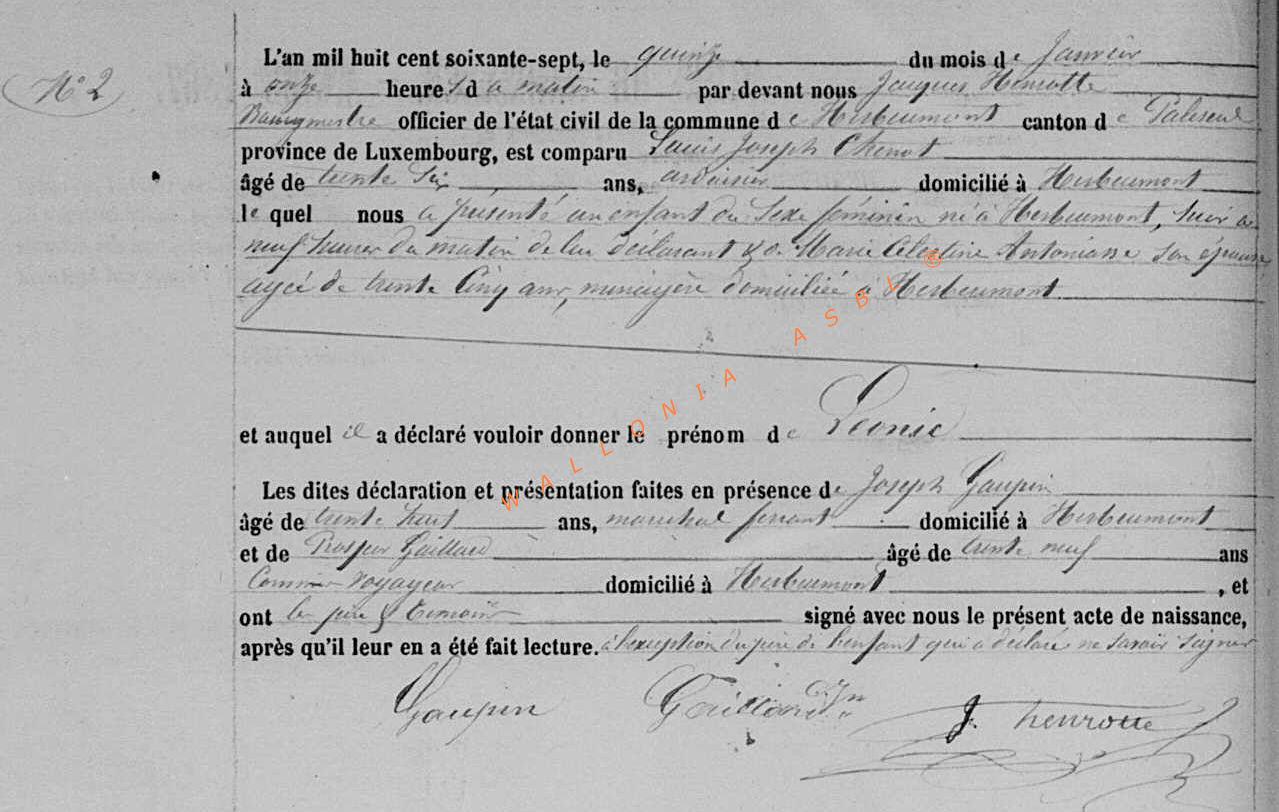 N° 2
L'an mil huit cent soixante-sept, le quinze du mois de Janvier
à onze heures du matin par devant nous Jacques Henrotte
Bourgmestre officier de l'état civil de la commune de Herbeumont canton de Paliseul
province de Luxembourg, est comparu Louis Joseph Chenot
âgé de trente six ans, ardoisier domicilié à Herbeumont
lequel nous a présenté un enfant du sexe féminin né à Herbeumont, hier à
neuf heures du matin de lui déclarant & de Marie Célestine Antoniasse son épouse
agée de trente cinq ans, ménagère domiciliée à Herbeumont
et auquel il a déclaré vouloir donner le prénom de Léonie
Les dites déclaration et présentation faites en présence de Joseph Gaupin
âgé de trente huit ans, maréchal ferrant domicilié à Herbeumont
et de Prosper Gaillard âgé de trente neuf ans
Commis-Voyageur domicilié à Herbeumont, et
ont les père & témoins signé avec nous le présent acte de naissance,
après qu'il leur en a été fait lecture. à l'exception du père de l'enfant qui a déclaré ne savoir signer
Gaupin Gaillard J. henrotte
WALLONIA ASBL ®